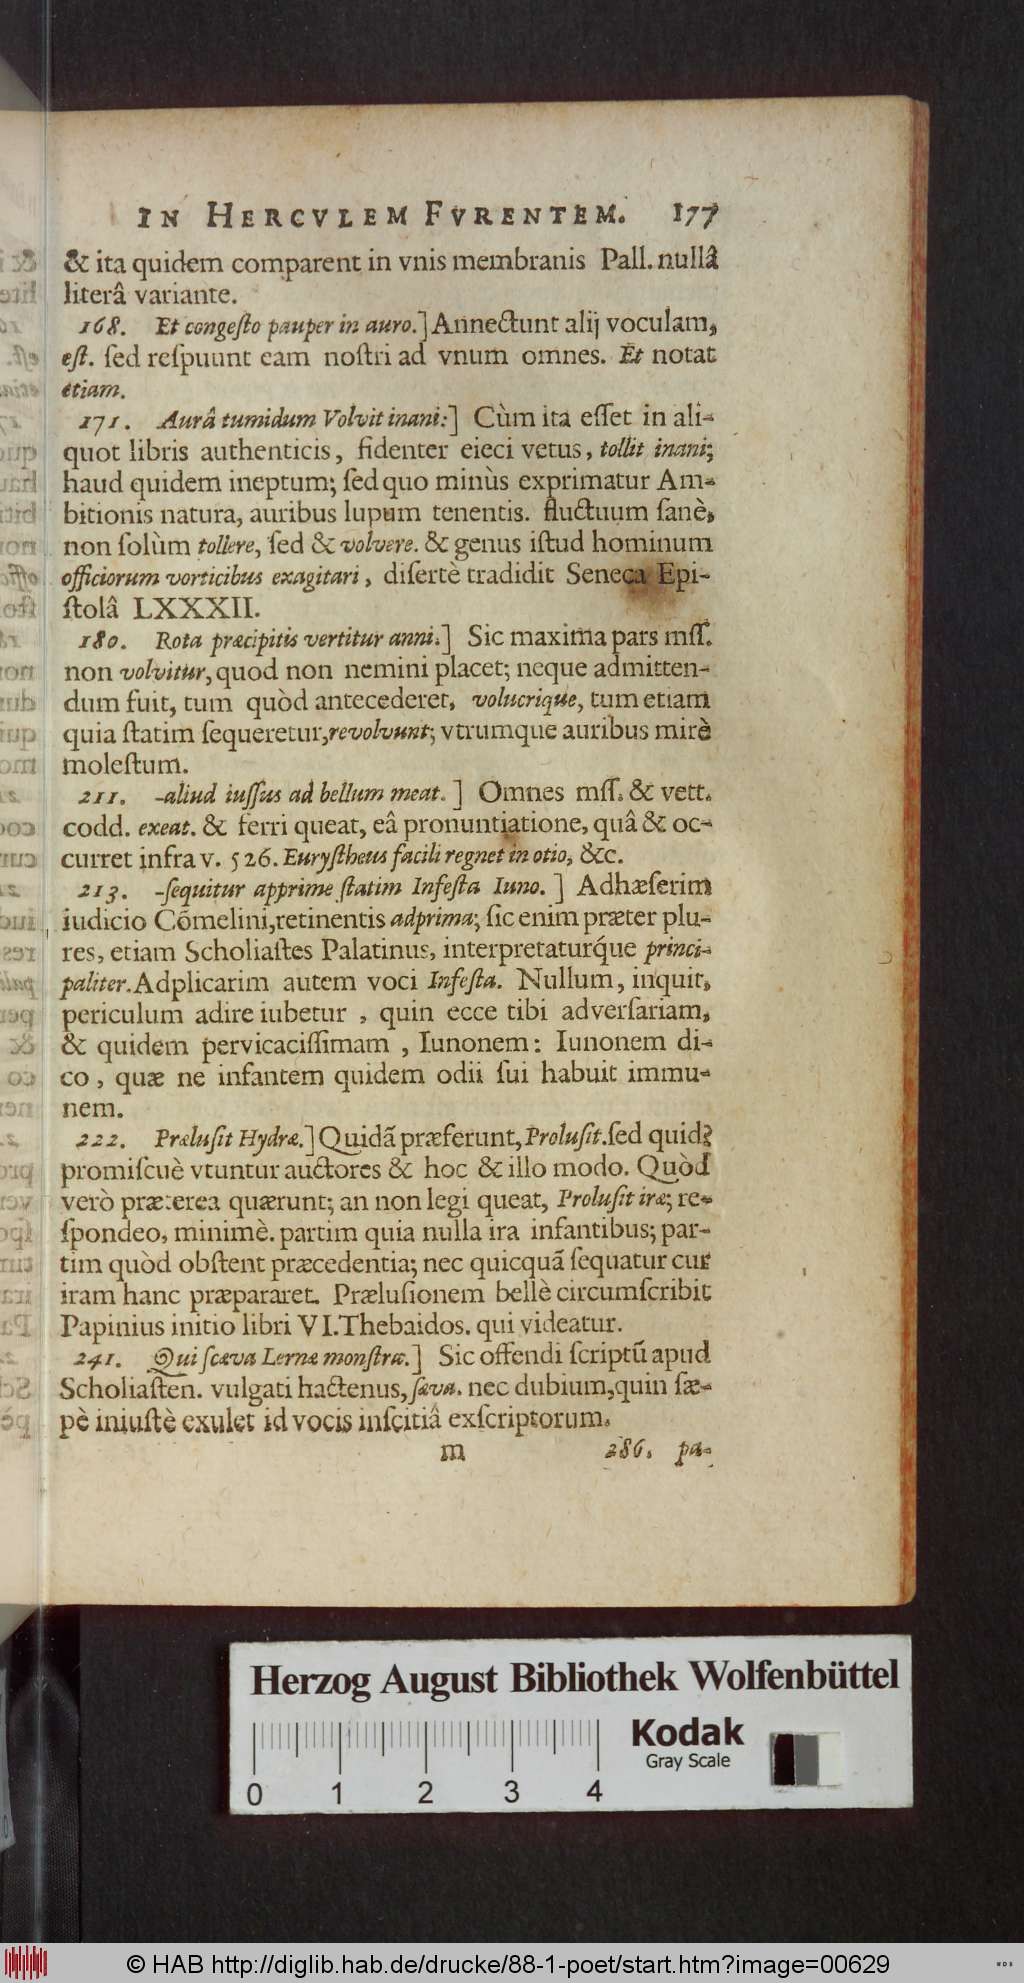 IN HERCVLEM FVRENTEM. 177
& ita quidem comparent in vnis membranis Pall. nullâ
literâ variante.
168. Et congeſto pauper in auro.] Annectunt alij voculam,
eſt. ſed reſpuunt eam noſtri ad vnum omnes. Et notat
etiam.
171. Aurâ tumidum Volvit inani:] Cùm ita eſſet in ali-
quot libris authenticis, fidenter eieci vetus, tollit inani;
haud quidem ineptum; ſed quo minùs exprimatur Am-
bitionis natura, auribus lupum tenentis. fluctuum ſanè,
non ſolùm tollere, ſed & volvere. & genus iſtud hominum
officiorum vorticibus exagitari, diſertè tradidit Seneca Epi-
ſtolâ LXXXII.
180. Rota præcipitis vertitur anni.] Sic maxima pars mſſ.
non volvitur, quod non nemini placet; neque admitten-
dum fuit, tum quòd antecederet, volucrique, tum etiam
quia ſtatim ſequeretur, revolvunt; vtrumque auribus mirè
moleſtum.
211. -aliud iuſſus ad bellum meat.] Omnes mſſ. & vett.
codd. exeat. & ferri queat, eâ pronuntiatione, quâ & oc-
curret infra v. 526. Euryſtheus facili regnet in otio, &c.
213. -ſequitur apprime ſtatim Infeſta Iuno.] Adhæſerim
iudicio Cõmelini, retinentis adprima; ſic enim præter plu-
res, etiam Scholiaſtes Palatinus, interpretaturq́ue princi-
paliter. Adplicarim autem voci Infeſta. Nullum, inquit,
periculum adire iubetur, quin ecce tibi adverſariam,
& quidem pervicaciſſimam, Iunonem: Iunonem di-
co, quæ ne infantem quidem odii ſui habuit immu-
nem.
222. Præluſit Hydræ.] Quidã præferunt, Proluſit. ſed quid?
promiſcuè vtuntur auctores & hoc & illo modo. Quòd
verò præterea quærunt; an non legi queat, Proluſit iræ; re-
ſpondeo, minimè. partim quia nulla ira infantibus; par-
tim quòd obſtent præcedentia; nec quicquã ſequatur cur
iram hanc præpararet. Præluſionem bellè circumſcribit
Papinius initio libri VI. Thebaidos. qui videatur.
241. Qui ſcæva Lernæ monſtra.] Sic offendi ſcriptũ apud
Scholiaſten. vulgati hactenus, ſæva. nec dubium, quin ſæ-
pè iniuſtè exulet id vocis inſcitiâ exſcriptorum.
m 286. pa-
Herzog August Bibliothek Wolfenbüttel
Kodak
Gray Scale
0 1 2 3 4
© HAB http://diglib.hab.de/drucke/88-1-poet/start.htm?image=00629